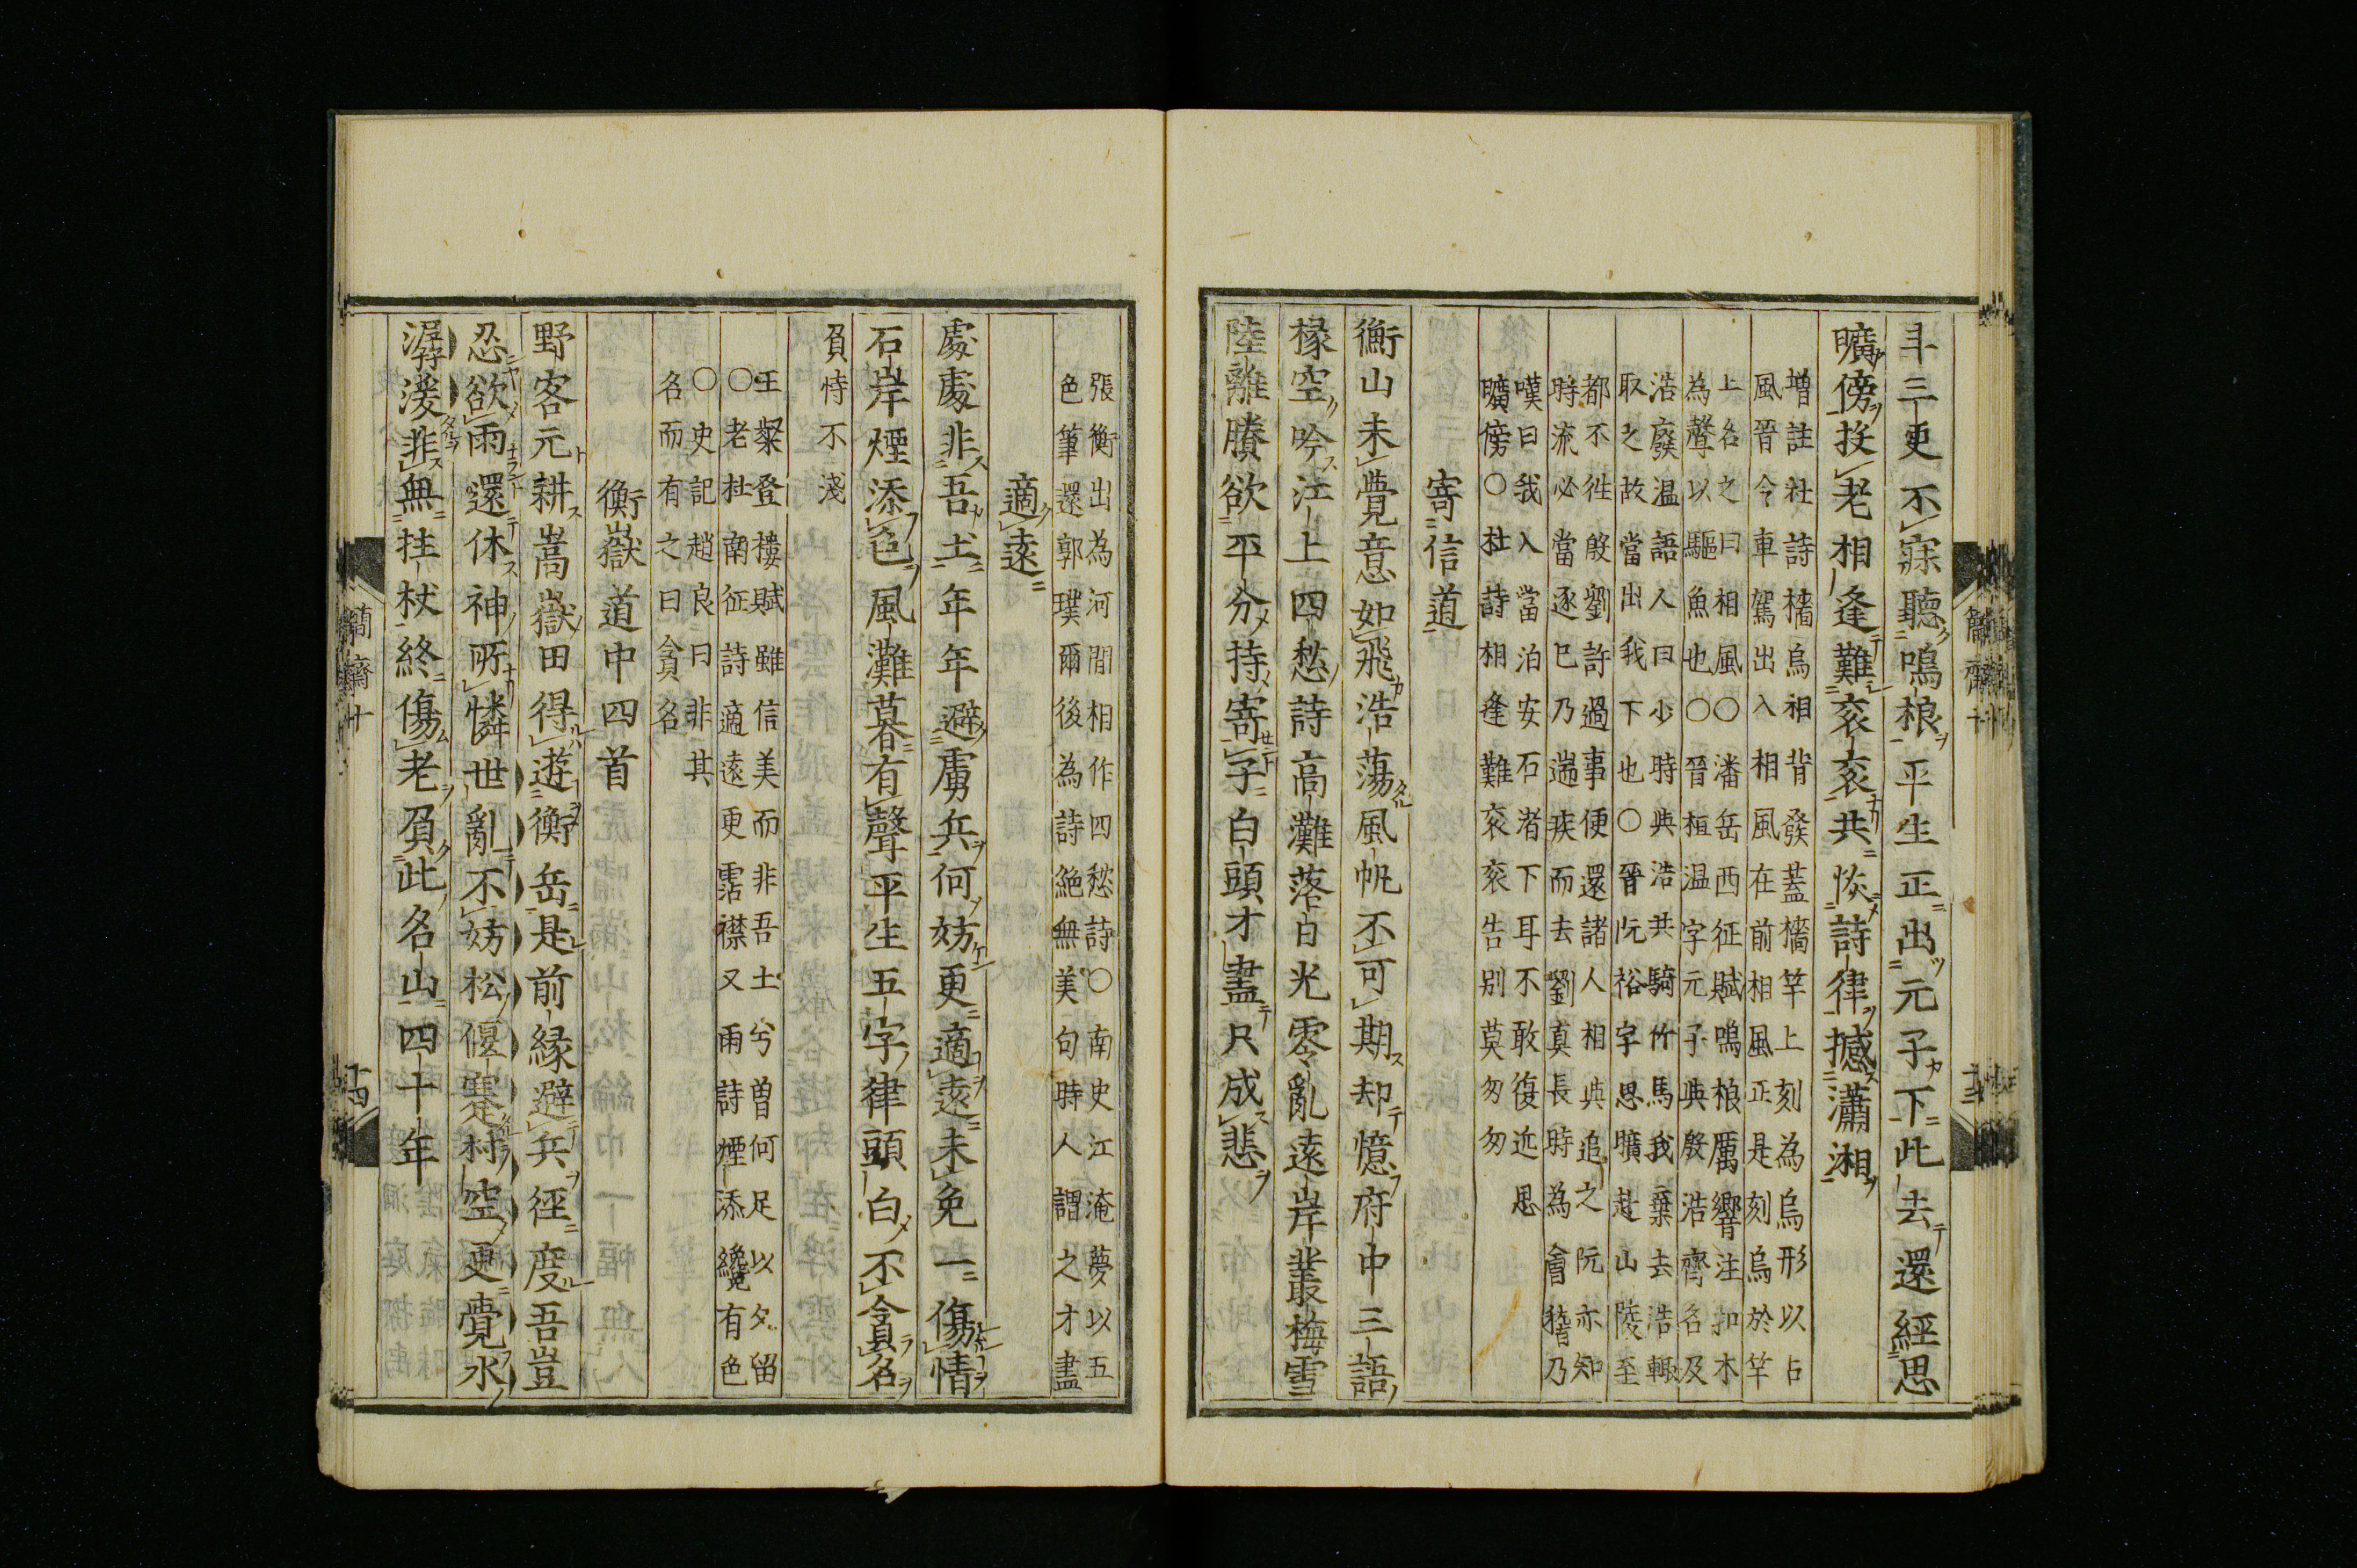 斗三更不寐聽鳴榔平生正出元子下此去還經思
曠傍投老相逢難衮衮共恢詩律撼瀟湘
增註杜詩檣烏相背發蓋檣竿上刻為烏形以占
風晉令車駕出入相風在前相風正是刻烏於竿
上名之曰相風〇潘岳西征賦鳴榔厲響注扣木
為聲以驅魚也〇晉桓温字元子與殷浩齊名及
浩廢温語人曰少時與浩共騎竹馬我棄去浩輒
取之故當出我下也〇晉阮裕字思曠赴山陵至
都不徃殷劉許過事便還諸人相與追之阮亦知
時流必當逐已乃遄疾而去劉真長時為會稽乃
嘆曰我入當泊安石渚下耳不敢復近思
曠傍〇杜詩相逢難衮衮告別莫匆匆
寄信道
衡山未覺意如飛浩蕩風帆不可期却憶府中三語
掾空吟江上四愁詩高灘落日光零亂遠岸叢梅雪
陸離賸欲平分持寄子白頭才盡只成悲
張衡出為河間相作四愁詩〇南史江淹夢以五
色筆還郭璞爾後為詩絶無美句時人謂之才盡
適遠
處處非吾土年年避虜兵何妨更適遠未免一傷情
石岸煙添色風灘暮有聲平生五字律頭白不貪名
負恃不淺
王粲登樓賦雖信美而非吾土兮曽何足以少留
〇老杜南征詩適遠更霑襟又雨詩煙添纔有色
〇史記趙良曰非其
名而有之曰貪名
衡嶽道中四首
野客元耕嵩嶽田得遊衡岳是前緣避兵徑度吾豈
忍欲雨還休神所憐世亂不妨松偃蹇村空更覺水
潺湲非無拄杖終傷老負此名山四十年
簡齋十
十四